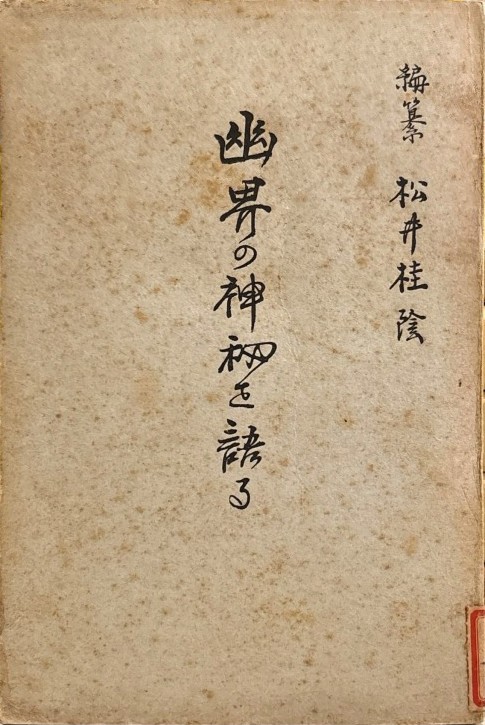 編纂 松井桂陰
幽界の神秘を語る